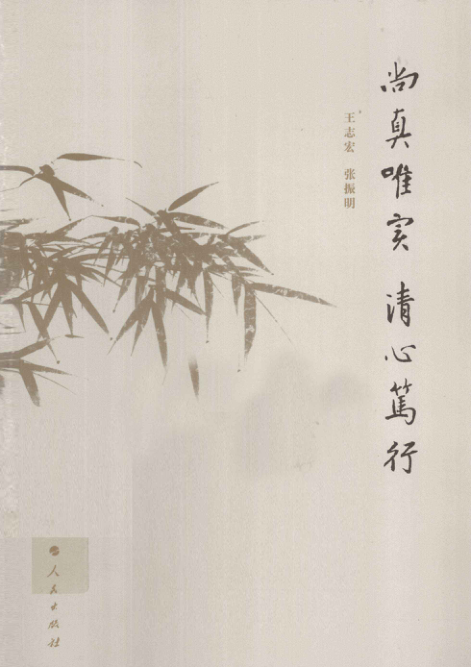 尚真唯实 清心笃行
王志宏 张振明
人民出版社